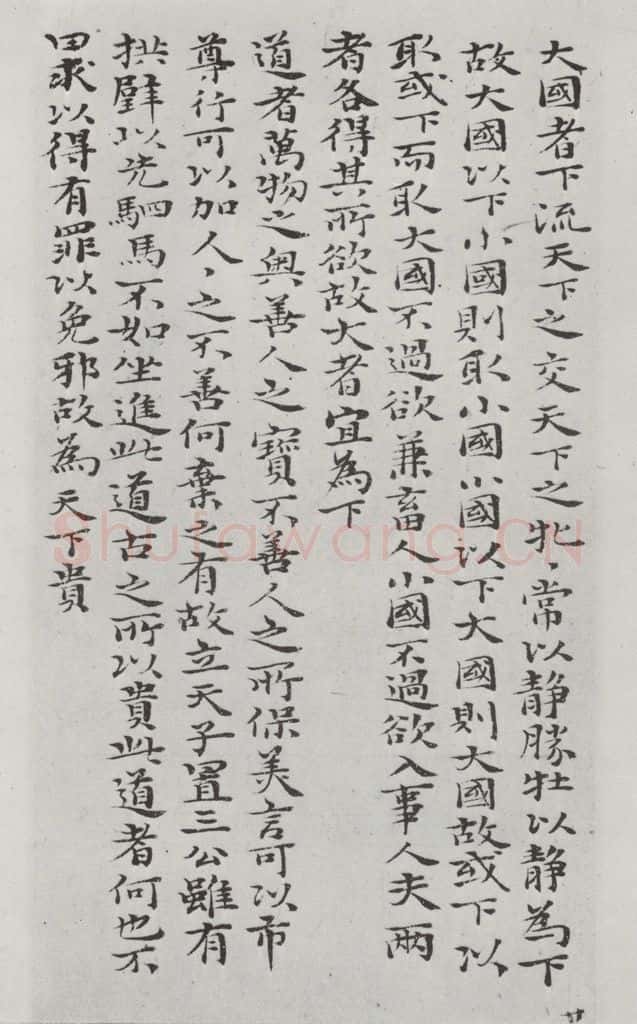 大國者下流天下之交天下之牝〻常以静勝牡以静為下
故大國以下小國則取小國小國以下大國則大國故或下以
取或下而取大國不過欲兼畜人小國不過欲入事人夫兩
者各得其所欲故大者宜為下
道者萬物之奥善人之寶不善人之所保美言可以市
尊行可以加人〻之不善何棄之有故立天子置三公雖有
拱璧以先駟馬不如坐進此道古之所以貴此道者何也不
曰求以得有罪以免邪故為天下貴
Shufawang.CN